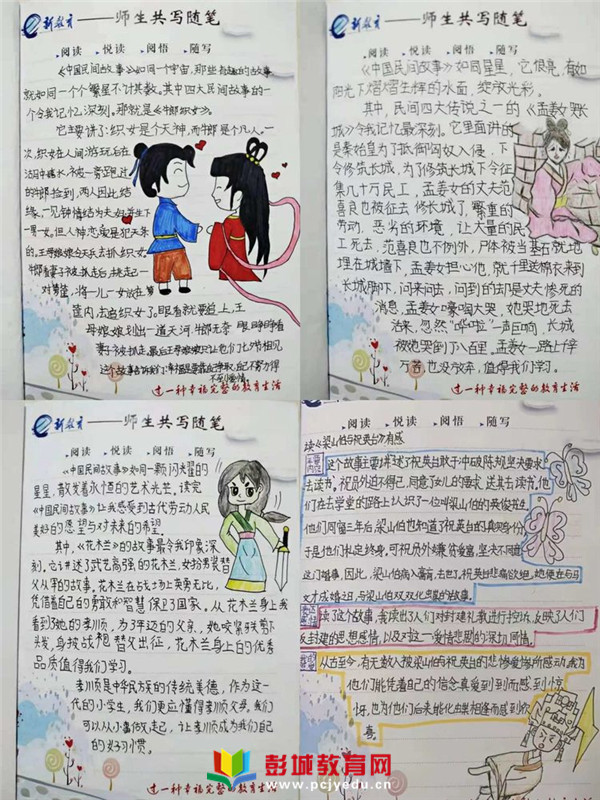 新教育——师生共写随笔
·阅读 ·悦读 ·阅悟 ·随写
《中国民间故事》如同一个宇宙，那些有趣的故事
就如同一个个繁星不计其数。其中四大民间故事的一
个令我记忆深刻。那就是《牛郎织女》。
它主要讲了：织女是个天神，而牛郎是个凡人。一
次，织女在人间游玩后在
沐浴
的牛郎捡到，两人因此结
缘、一见钟情结为夫妇并生下
一男一女。但人神恋爱是犯天条
的。王母娘娘令天兵去抓织女。
牛郎看妻子被抓走后，挑起一
对箩筐，将一儿一女放在箩
筐内，去追织女了。眼看就要追上，王
母娘娘划出一道天河，牛郎无奈，眼睁睁看
妻子被抓走。最后王母娘娘只让他们七夕节相见
这个故事告诉我们：幸福是靠自己争取，自己不努力得
不到爱情。
过一种幸福完整的教育生活
——师生共写随笔
·阅读 ·悦读 ·阅悟 ·随写
《中国民间故事》如同星星，它很亮，有如
阳光下熠熠生辉的水面，绽放光彩。
其中，民间四大传说之一的《孟姜女哭长
城》令我记忆最深刻。它里面讲的
是秦始皇为了抵御匈奴入侵，下
令修筑长城。为了修筑长城下令征
集几十万民工，孟姜女的丈夫范
喜良也被征去修长城了，繁重的
劳动，恶劣的环境，让大量的民
工死去，范喜良也不例外，尸体被当基石就地
埋在城墙下，孟姜女担心他，就千里送棉衣来到
长城脚下，问来问去，问到的却是丈夫惨死的
消息，孟姜女嚎啕大哭，她哭地死去
活来，忽然"哗啦"一声巨响，长城
被她哭倒了八百里。孟姜女一路上千辛
万苦，也没放弃，值得我们学习。
过一种幸福完整的教育生活
新教育——师生共写随笔
·阅读 ·悦读 ·阅悟 ·随写
《中国民间故事》如同一颗闪耀的
星星，散发着永恒的艺术光芒。读完
《中国民间故事》让我感受到古代劳动人民
美好的愿望与对未来的希望。
其中，《花木兰》的故事最令我印象深
刻。它讲述了武艺高强的花木兰，女扮男装替
父从军的故事。花木兰在战场上英勇无比，
凭借着自己的勇敢和智慧保卫了国家。从花木兰身上我
看到了她的孝顺，为了年迈的父亲，她咬紧牙剪下
头发，身披战袍替父出征，花木兰身上的优秀
品质值得我们学习。
孝顺是中华民族的传统美德，作为这一
代的小学生，我们更应懂得孝顺父母。我们
可以从小事做起，让孝顺成为我们自己
的好习惯。
过一种幸福完整的教育生活
读《梁山伯与祝英台》有感
这个故事主要讲述了祝英台敢于冲破陈规，坚决要求出
去读书。祝员外迫不得已，同意了女儿的请求，送其去读书，他
们在去学堂的路上，认识了一位叫梁山伯的英俊书生，
他们同窗三年后，梁山伯也知道了祝英台的真实身份，
于是他们私定终身，可祝员外嫌贫爱富，坚决不同意
这门婚事，因此，梁山伯病入膏肓，去世了。祝英台悲痛欲绝，她便在与马
文才成婚之日，与梁山伯双双化蝶的故事。
读了这个故事，我读出了人们对封建礼教进行控诉，反映了人们
反封建的思想感情，以及对这一爱情悲剧的深切同情。
从古至今，有无数人被梁山伯祝英台的悲惨爱情所感动，我为
他们能凭着自己的信念真爱到到而感到惊
讶，也为他们后来能化出来相逢而感到欣
意。
彭城教育网
www.pcjyedu.cn